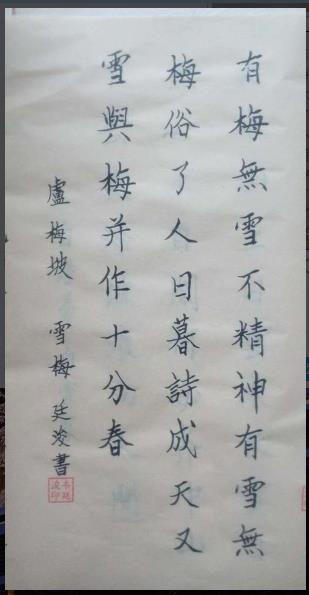 有梅無雪不精神有雪無
梅俗了人日暮詩成天又
雪與梅并作十分春
盧梅坡 雪梅 廷浚書